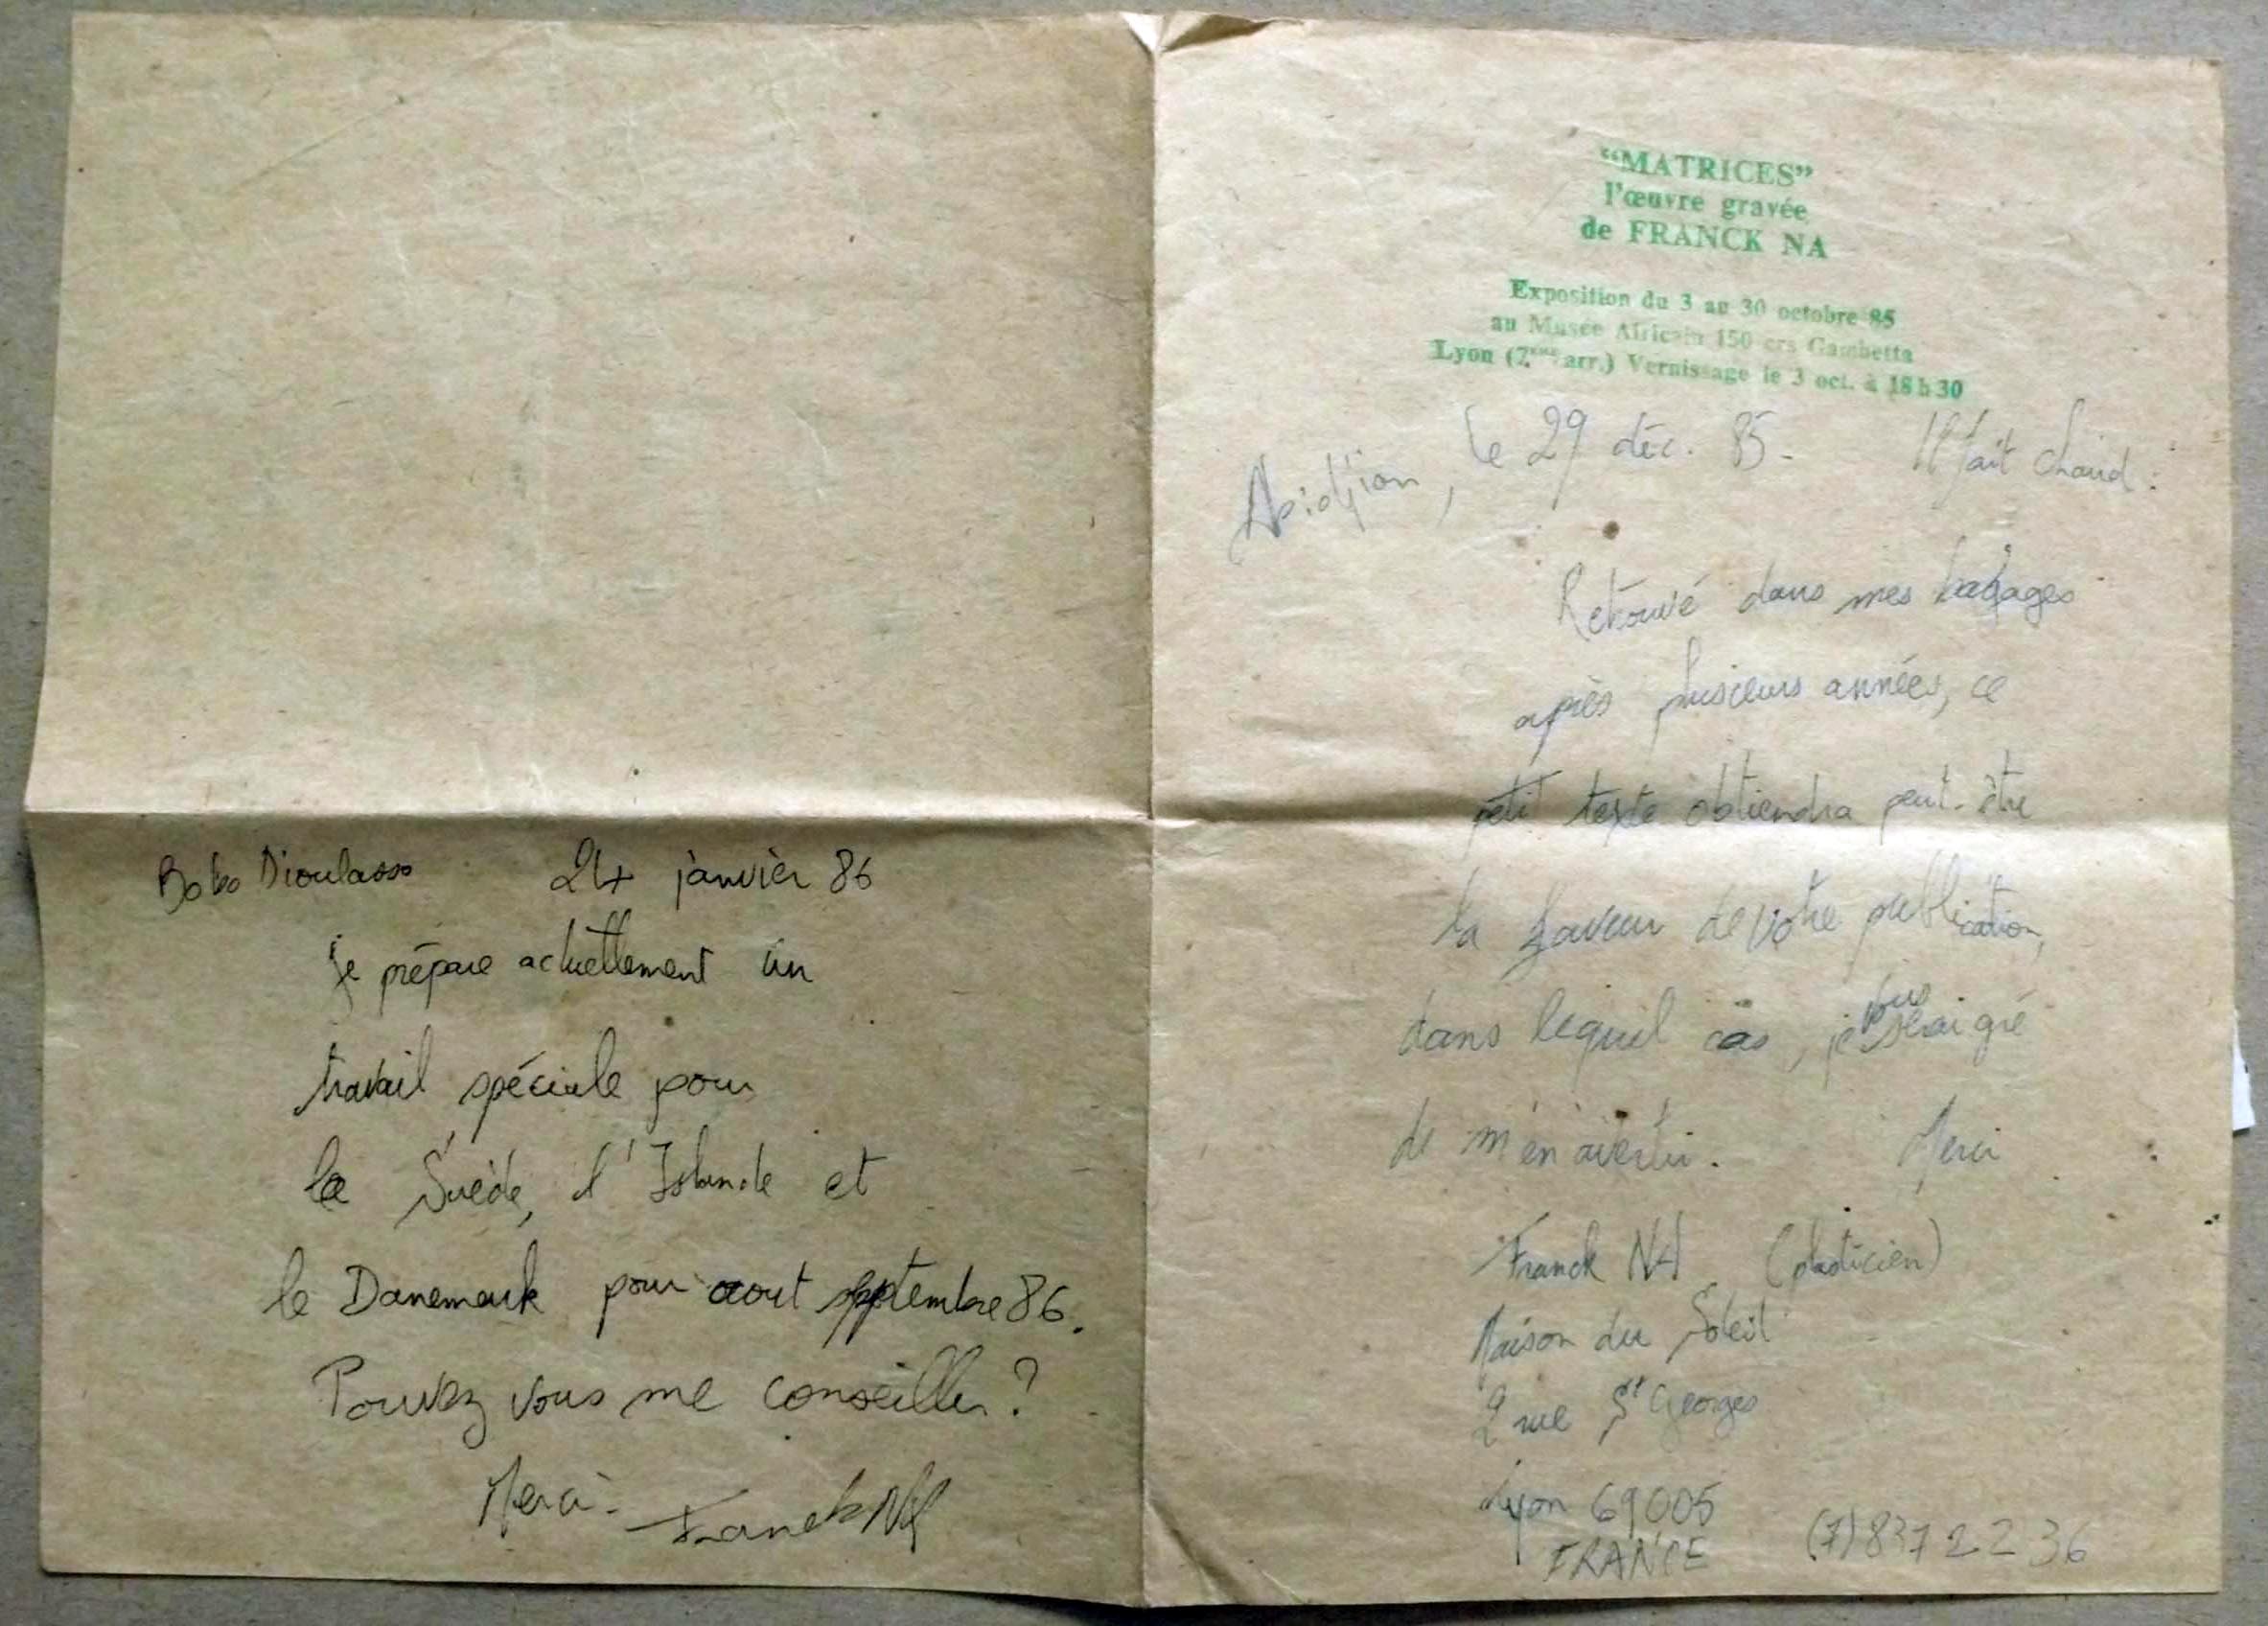 “MATRICES”
l’œuvre gravée
de FRANCK NA
Exposition du 3 au 30 octobre 85
au Musée Africain 150 crs Gambetta
Lyon (7ème arr.) Vernissage le 3 oct. à 18 h 30
Abidjan, le 29 déc. 85 - Il fait chaud :
Retrouvé dans mes bagages
après plusieurs années, ce
petit texte obtiendra peut-être
la faveur de votre publication,
dans lequel cas, je vous serai gré
de m'en avertir. Merci
Franck NA (plasticien)
Maison du Soleil
2 rue St Georges
Lyon 69005
FRANCE (7) 837 22 36
Bobo Dioulasso 24 janvier 86
je prépare actuellement un
travail spéciale pour
la Suède, l'Islande et
le Danemark pour aout septembre 86.
Pouvez vous me conseiller ?
Merci - Franck NA